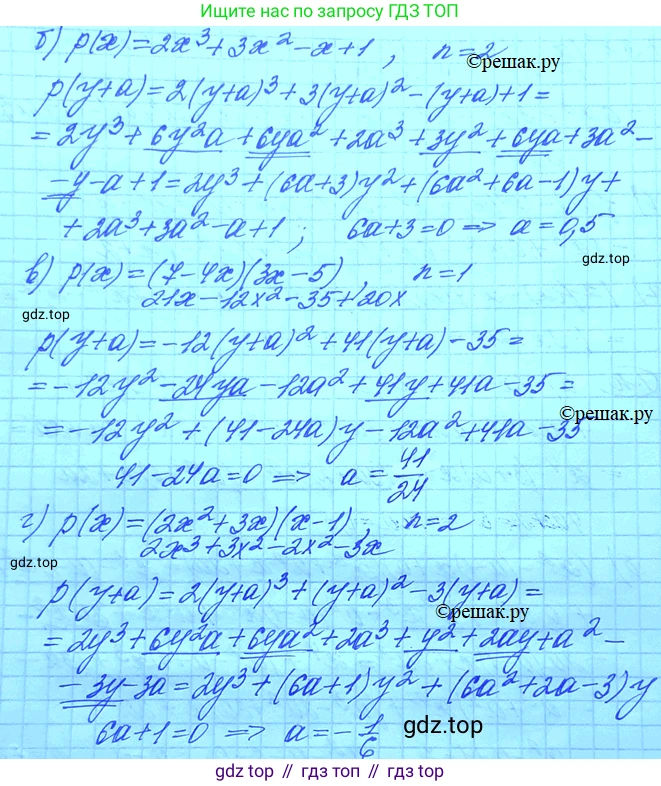 Ищите нас по запросу ГДЗ ТОП
б) p(x)=2x³+3x²-x+1, n=2
©решак.ру
p(y+a)=2(y+a)³+3(y+a)²-(y+a)+1=
=2y³+6y²a+6ya²+2a³+3y²+6ya+3a²-
-y-a+1=2y³+(6a+3)y²+(6a²+6a-1)y+
+2a³+3a²-a+1; 6a+3=0 => a=0,5
в) p(x)=(7-4x)(3x-5), n=1
21x-12x²-35+20x
gdz.top
gdz.top
p(y+a)=-12(y+a)²+41(y+a)-35=
=-12y²-24ya-12a²+41y+41a-35=
©решак.ру
=-12y²+(41-24a)y-12a²+41a-35
41-24a=0 => a=41/24
г) p(x)=(2x²+3x)(x-1), n=2
2x³+3x²-2x²-3x
gdz.top
gdz.top
p(y+a)=2(y+a)³+(y+a)²-3(y+a)=
©решак.ру
=2y³+6y²a+6ya²+2a³+y²+2ay+a²-
-3y-3a=2y³+(6a+1)y²+(6a²+2a-3)y
6a+1=0 => a=-1/6
gdz.top
gdz.top // гдз.топ // gdz.top